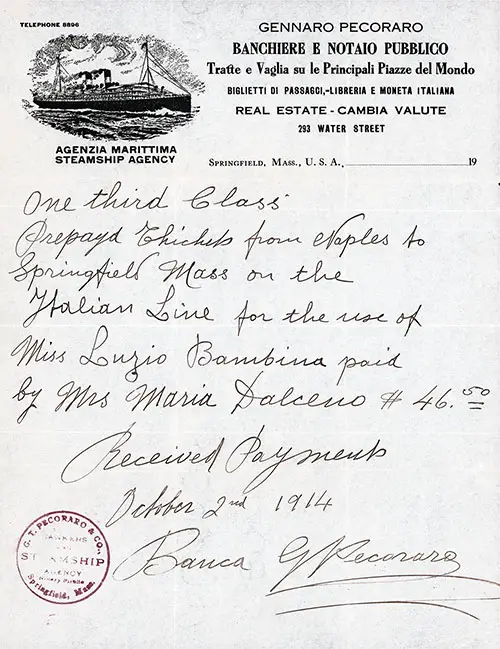 TELEPHONE 8896
GENNARO PECORARO
BANCHIERE E NOTAIO PUBBLICO
Tratte e Vaglia su le Principali Piazze del Mondo
BIGLIETTI DI PASSAGGI,-LIBRERIA E MONETA ITALIANA
REAL ESTATE - CAMBIA VALUTE
293 WATER STREET
AGENZIA MARITTIMA
STEAMSHIP AGENCY
SPRINGFIELD, MASS., U. S. A., 19
One third Class
Prepayd Thickets from Naples to
Springfield Mass on the
Italian Line for the use of
Miss Luzio Bambina paid
by Mrs Maria Dalceno # 46.50
Received Payments
October 2nd 1914
Banca G Pecoraro
G. T. PECORARO & CO.,
BANKERS
AND
STEAMSHIP
AGENCY
Notary Public
Springfield, Mass.